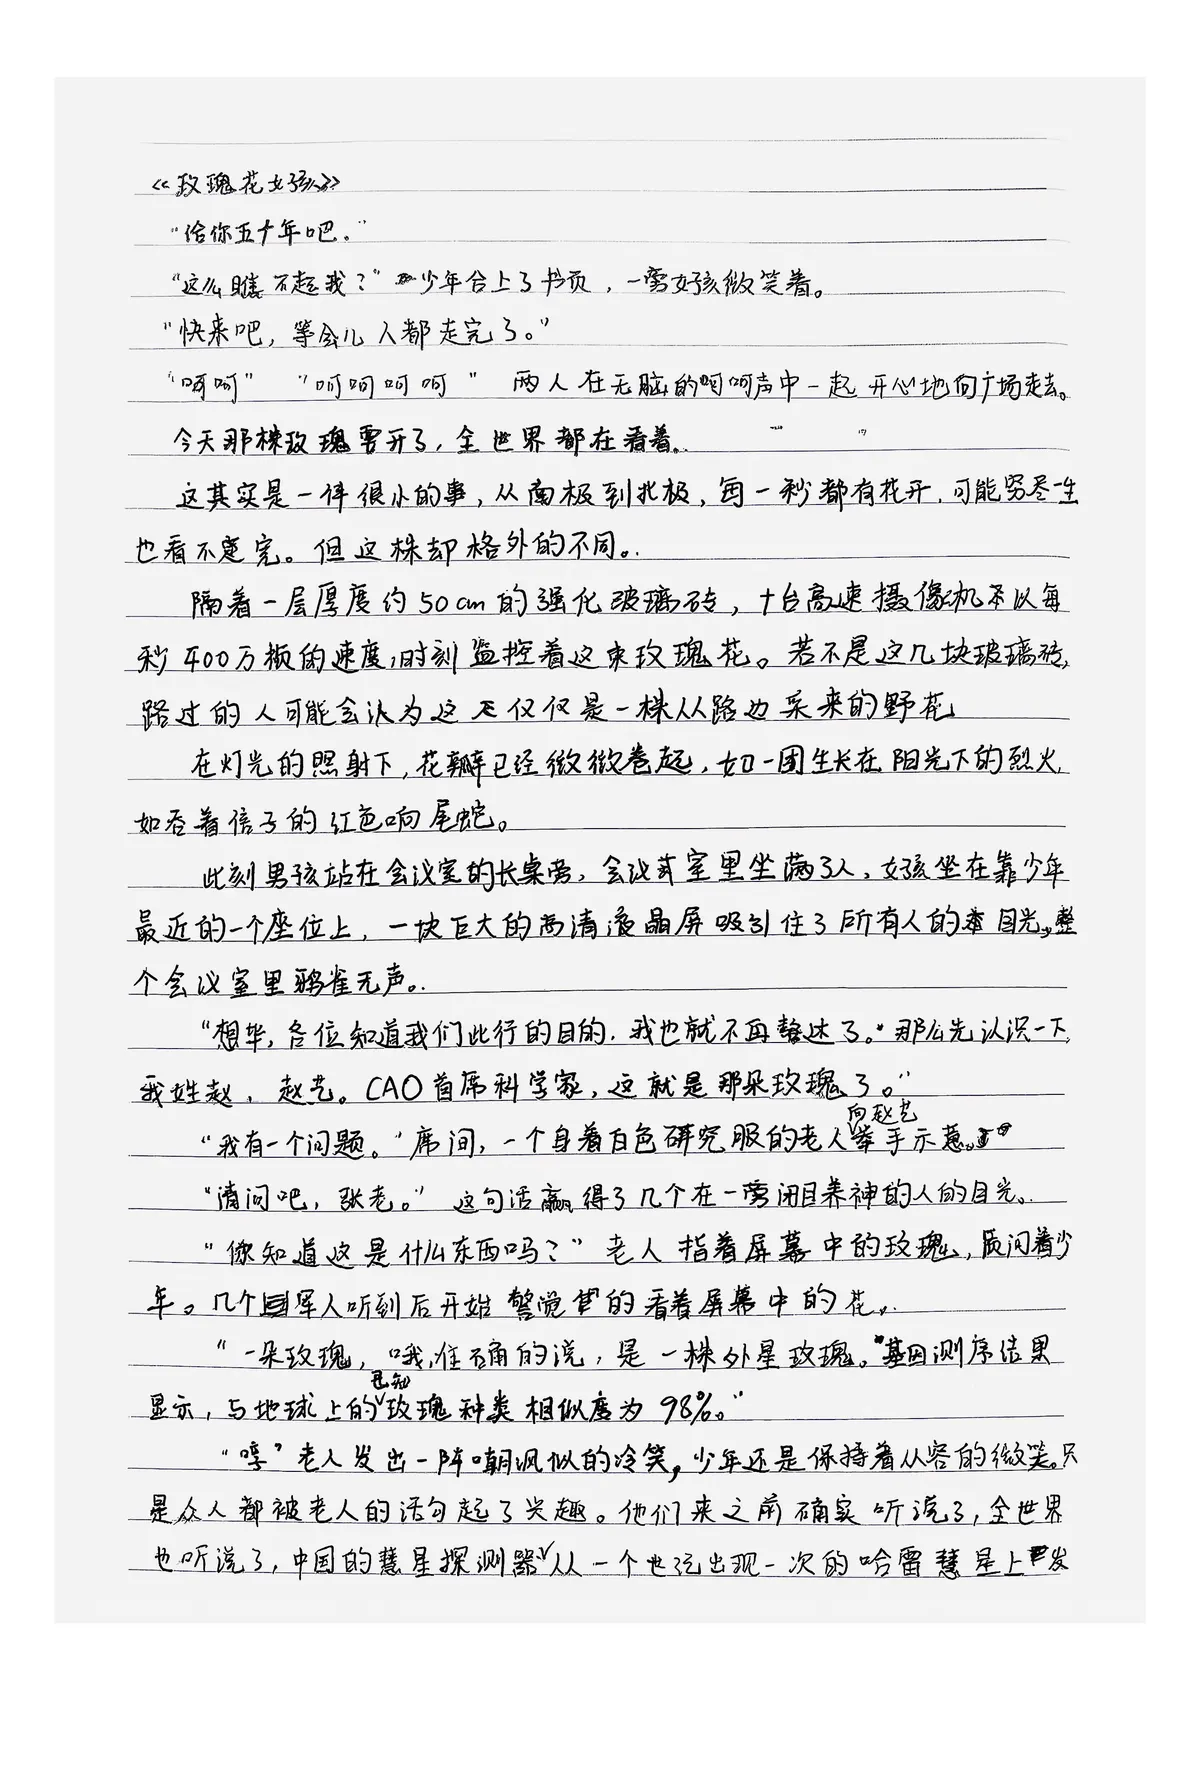 《玫瑰花女孩》
“给你五十年吧.”
“这么瞧不起我？”少年合上了书页，一旁女孩微笑着。
“快来吧，等会儿人都走完了。”
“呵呵” “呵呵呵呵” 两人在无脑的呵呵声中一起开心地向广场走去。
今天那株玫瑰要开了，全世界都在看着.
这其实是一件很小的事，从南极到北极，每一秒都有花开，可能穷尽一生
也看不完。但这株却格外的不同。
隔着一层厚度约50cm的强化玻璃砖，十台高速摄像机本以每
秒400万桢的速度，时刻监控着这束玫瑰花。若不是这几块玻璃砖，
路过的人可能会认为这仅仅是一株从路边采来的野花
在灯光的照射下，花瓣已经微微卷起，如一团生长在阳光下的烈火，
如吞着信子的红色响尾蛇。
此刻男孩站在会议室的长桌旁，会议室里坐满了人，女孩坐在靠少年
最近的一个座位上，一块巨大的高清液晶屏吸引住了所有人的目光，整
个会议室里鸦雀无声。
“想毕，各位知道我们此行的目的，我也就不再赘述了。那么先认识一下，
我姓赵，赵艺。CAO首席科学家，这就是那朵玫瑰了。”
“我有一个问题。”席间，一个身着白色研究服的老人向赵艺举手示意。
“请问吧，张老。”这句话赢得了几个在一旁闭目养神的人的目光。
“你知道这是什么东西吗？”老人指着屏幕中的玫瑰，质问着少
年。几个军人听到后开始警觉的看着屏幕中的花。
“一朵玫瑰，哦，准确的说，是一株外星玫瑰。基因测序结果
显示，与地球上的已知玫瑰种类相似度为98%。”
“哼”老人发出一阵嘲讽似的冷笑，少年还是保持着从容的微笑。只
是众人都被老人的话勾起了兴趣。他们来之前确实听说了，全世界
也听说了，中国的慧星探测器从一个世纪出现一次的哈雷慧星上发